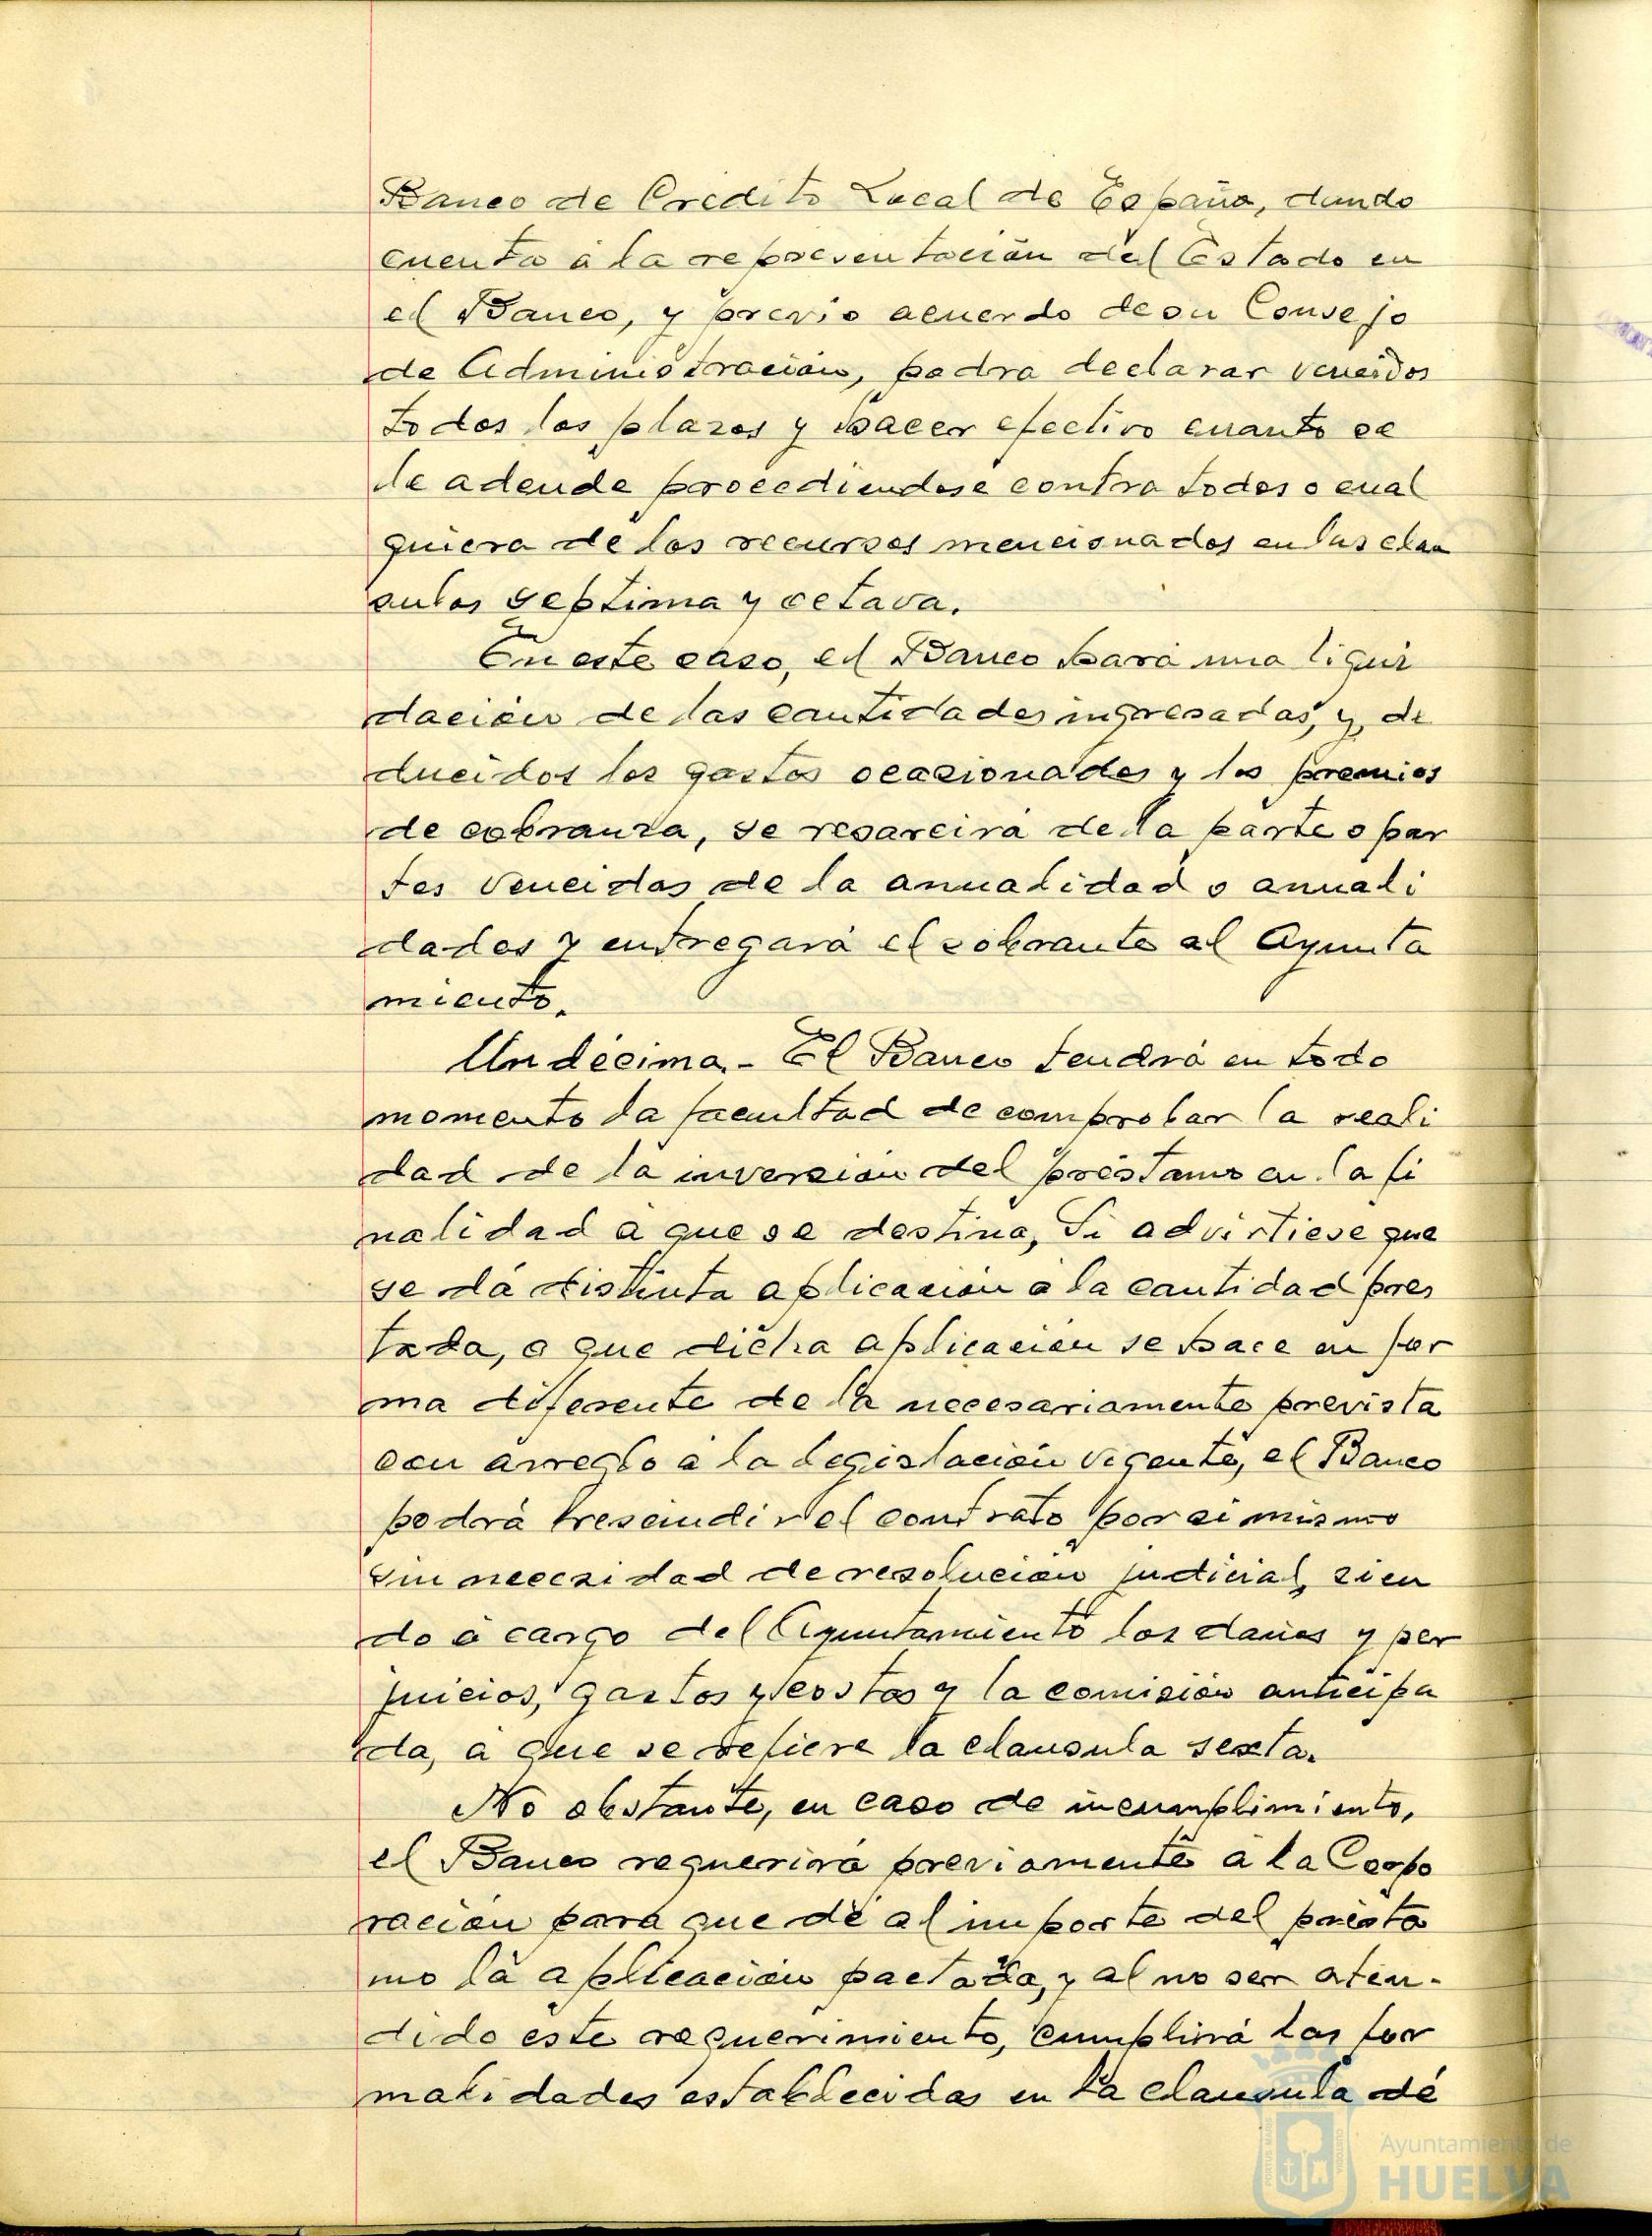 Banco de Credito Local de España, dando
cuenta á la representación del Estado en
el Banco, y previo acuerdo de su Consejo
de Administración, podra declarar vencidos
todos los plazos y hacer efectivo cuanto se
le adeude procediendose contra todos o cual
quiera de los recursos mencionados en las clau
sulas septima y octava.
En este caso, el Banco hará una liqui
dación de las cantidades ingresadas, y, de
ducidos los gastos ocasionados y los premios
de cobranza, se resarcirá de la parte o par
tes vencidas de la anualidad o anuali
dades y entregará el sobrante al Ayunta
miento.
Undécima.- El Banco tendrá en todo
momento la facultad de comprobar la reali
dad de la inversión del préstamo en la fi
nalidad a que se destina, Si advirtiese que
se dá distinta aplicación a la cantidad pres
tada, o que dicha aplicación se hace en for
ma diferente de la necesariamente prevista
con arreglo a la legislación vigente, el Banco
podrá rescindir el contrato por si mismo
sin necesidad de resolución judicial, sien
do a cargo del Ayuntamiento los daños y per
juicios, gastos y costas y la comisión anticipa
da, a que se refiere la clausula sexta.
No obstante, en caso de incumplimiento,
el Banco requerirá previamente a la Corpo
ración para que dé al importe del présta
mo la aplicación pactada, y al no ser aten-
dido este requerimiento, cumplirá las for
malidades establecidas en la clausula dé
Ayuntamiento de
HUELVA